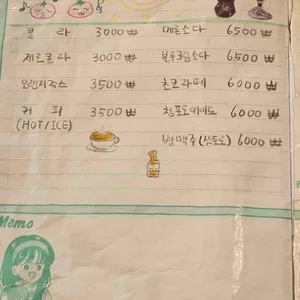 콜라 3000₩
제로콜라 3000₩
오렌지쥬스 3500₩
커피 3500₩
(HOT/ICE)
메론소다 6500₩
블루크림소다 6500₩
초코라떼 6000₩
청포도에이드 6000₩
병맥주(삿포로) 6000₩
Memo